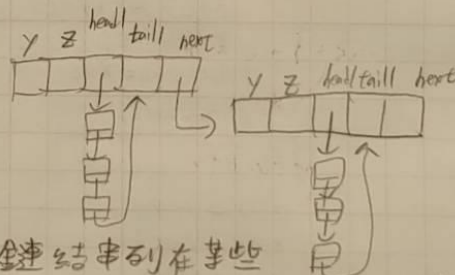 y z head1 tail1 next
y z head1 tail1 next
鏈連結串列在某些